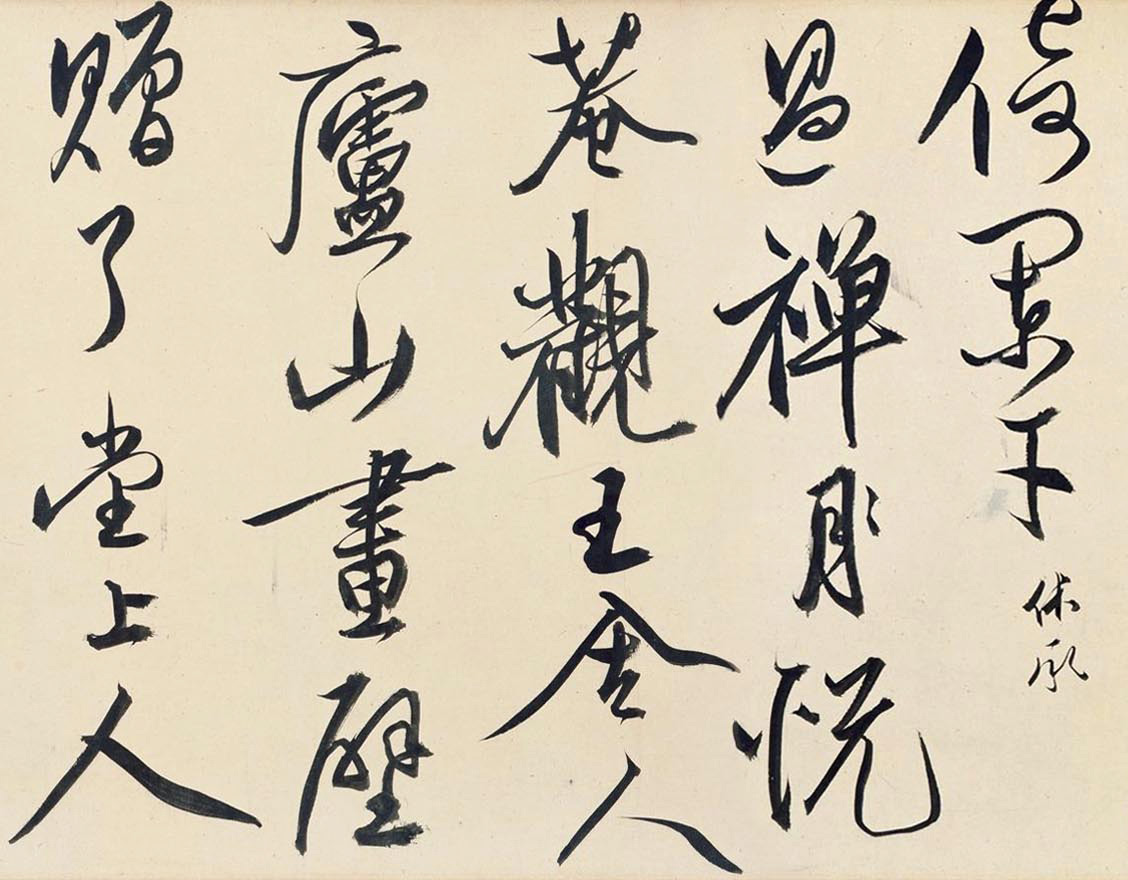 倚闌干 休承
過禪月悅
菴觀王舍人
廬山畫壁
贈了堂上人